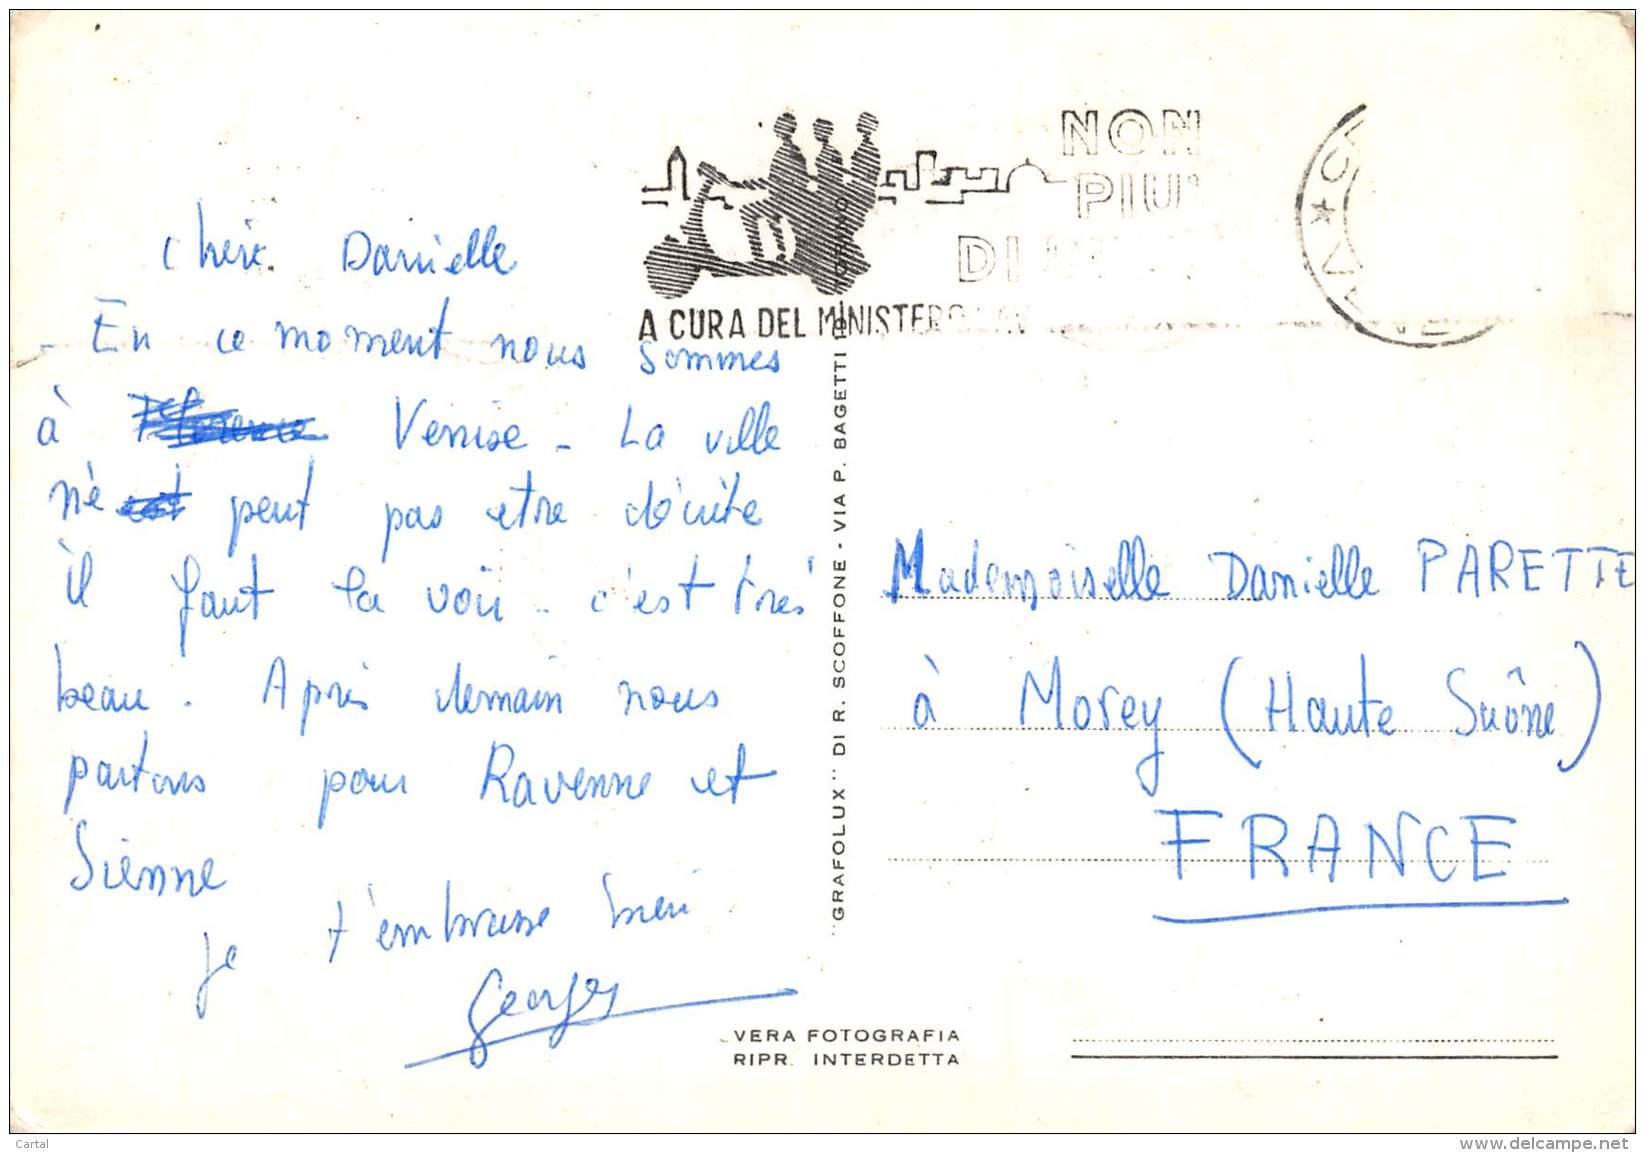 NON
PIU'
DI
A CURA DEL MINISTERO
Chère Danielle
- En ce moment nous sommes
à Florence Venise - La ville
né est peut pas etre décrite
il faut la voir - c'est très
beau. Après demain nous
partons pour Ravenne et
Sienne
je t'embrasse bien
Georges
"GRAFOLUX" DI R. SCOFFONE - VIA P. BAGETTI TORINO
Mademoiselle Danielle PARETTE
à Morey (Haute Saône)
FRANCE
VERA FOTOGRAFIA
RIPR. INTERDETTA
Cartal
www.delcampe.net